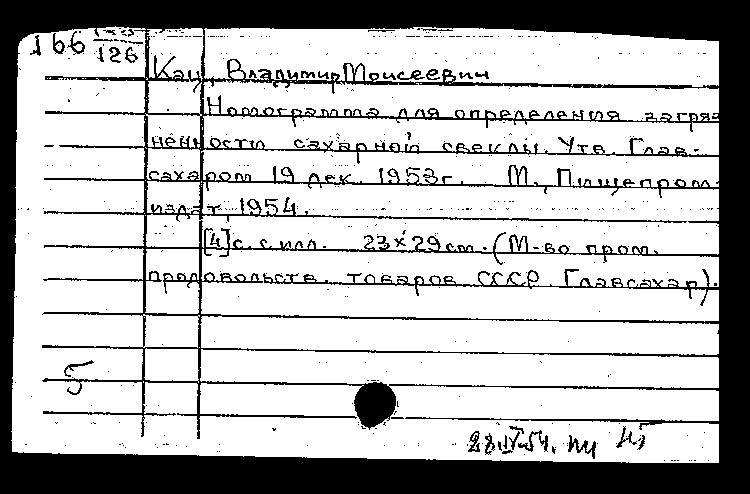 166 126
Кац, Владимир Моисеевич
Номограмма для определения загряз
ненности сахарной свеклы. Утв. Глав-
сахаром 19 дек. 1953г. М., Пищепром-
издат, 1954.
[4]с. с илл. 23×29см. (М-во пром.
продовольств. товаров СССР. Главсахар).
5
28.IV.54.